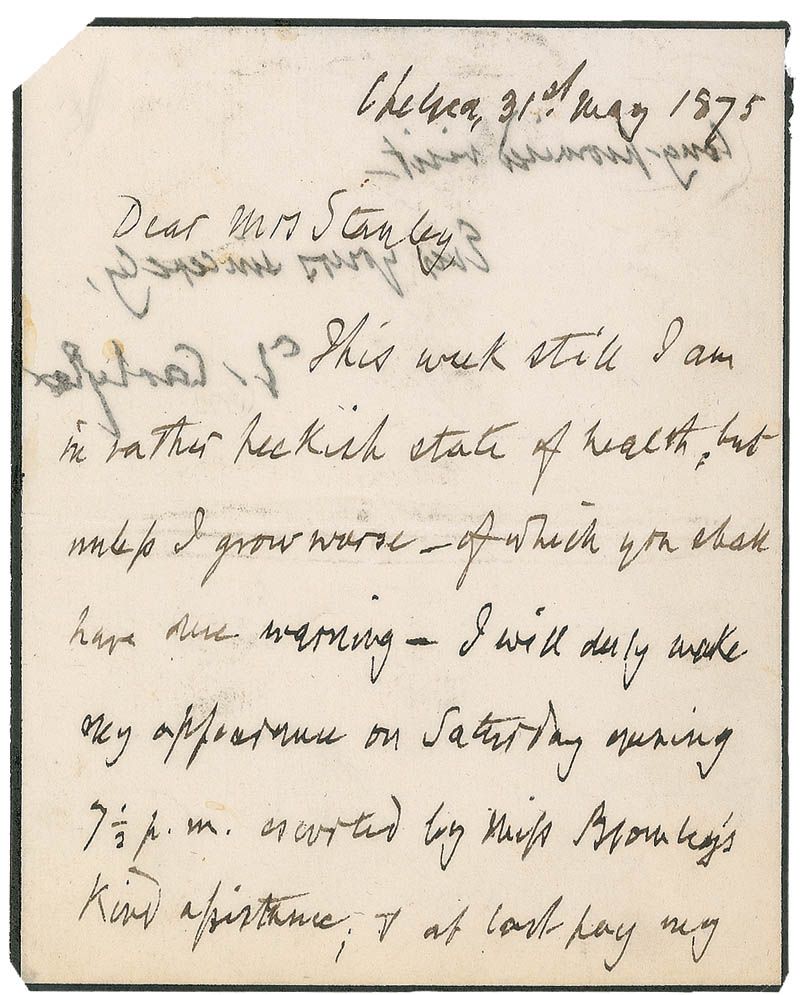 Chelsea, 31st May 1875
Dear Mrs Stanley
This week still I am
in rather heckish state of health; but
unless I grow worse – of which you shall
have due warning – I will duly make
my appearance on Saturday evening
7½ p.m. escorted by Miss Bromley's
kind assistance; & at last pay my
long-promised visit –
Ever yours sincerely,
T. Carlyle